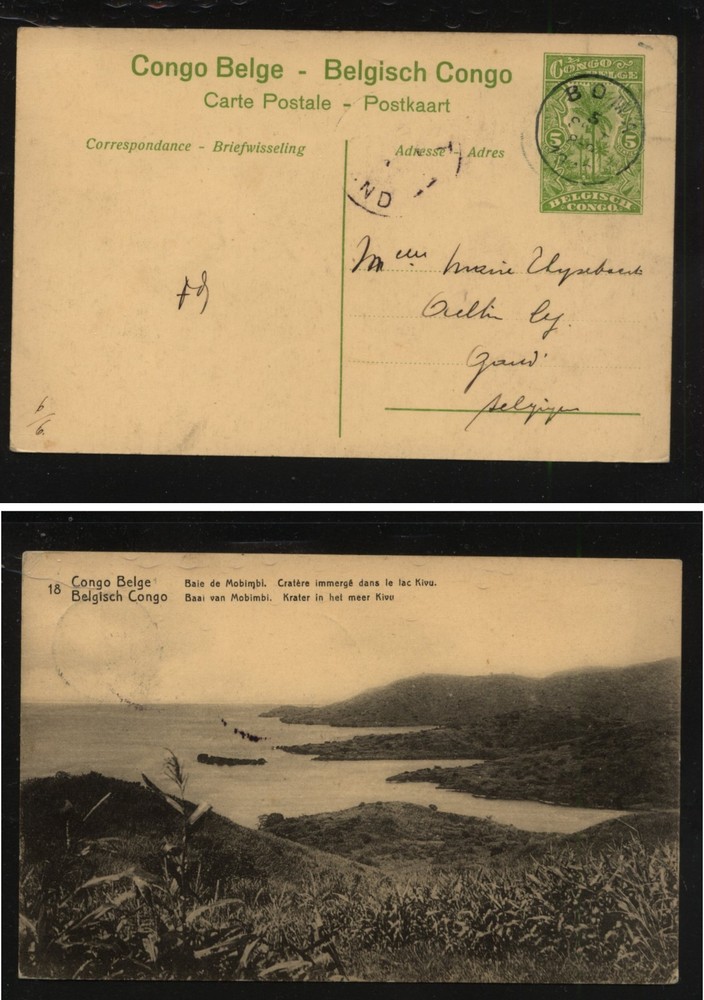 Congo Belge - Belgisch Congo
Carte Postale - Postkaart
Correspondance - Briefwisseling
Adresse - Adres
CONGO BELGE
BOMA
5 5
BELGISCH CONGO
ND
Marie
Gand
Belgique
6/6
18
Congo Belge
Belgisch Congo
Baie de Mobimbi. Cratère immergé dans le lac Kivu.
Baai van Mobimbi. Krater in het meer Kivu